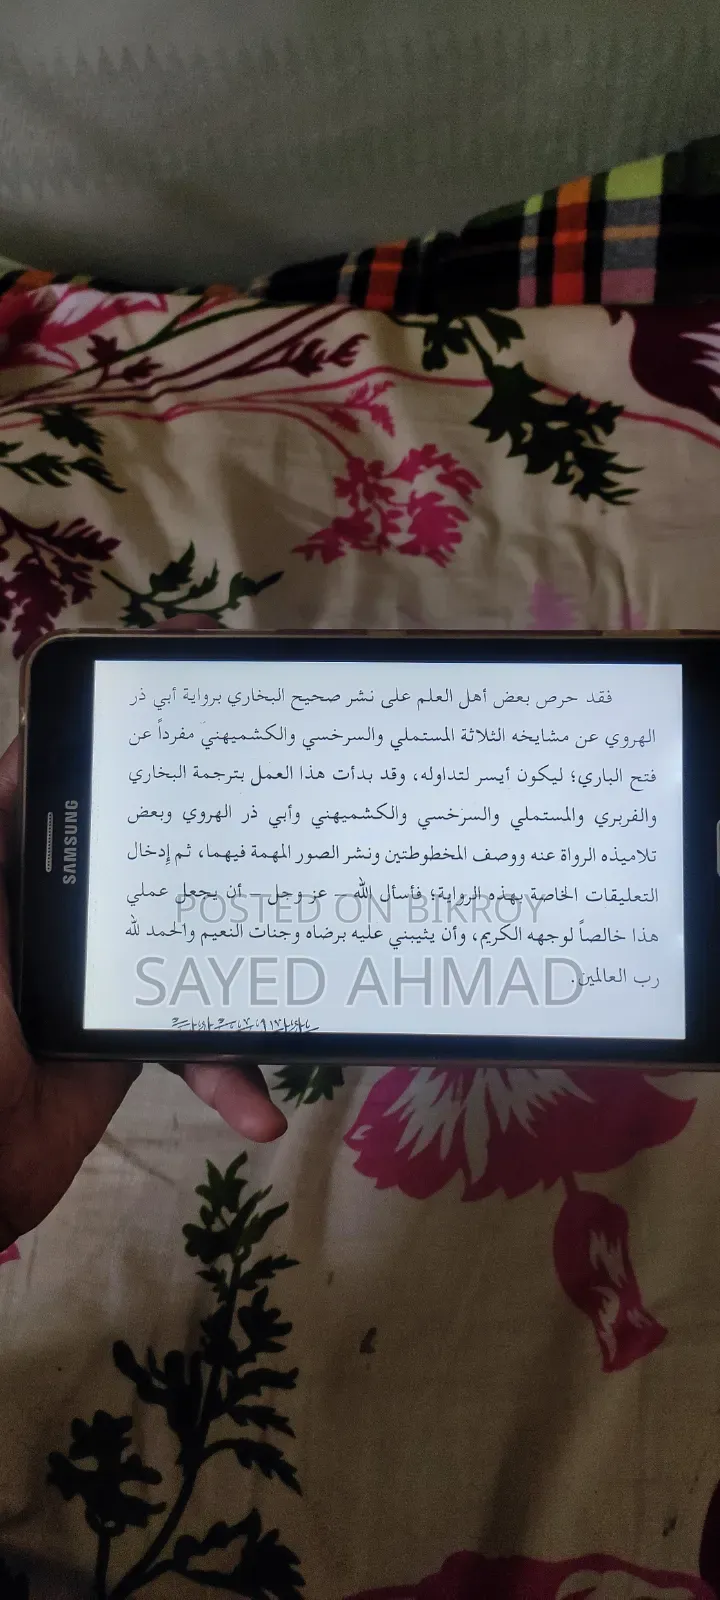 فقد حرص بعض أهل العلم على نشر صحيح البخاري برواية أبي ذر
الهروي عن مشايخه الثلاثة المستملي والسرخسي والكشميهني مفرداً عن
فتح الباري؛ ليكون أيسر لتداوله، وقد بدأت هذا العمل بترجمة البخاري
والفربري والمستملي والسرخسي والكشميهني وأبي ذر الهروي وبعض
تلاميذه الرواة عنه ووصف المخطوطتين ونشر الصور المهمة فيهما، ثم إدخال
التعليقات الخاصة بهذه الرواية؛ فأسأل الله – عز وجل – أن يجعل عملي
هذا خالصاً لوجهه الكريم، وأن يثيبني عليه برضاه وجنات النعيم والحمد لله
رب العالمين.
SAMSUNG
POSTED ON BIKROY
SAYED AHMAD